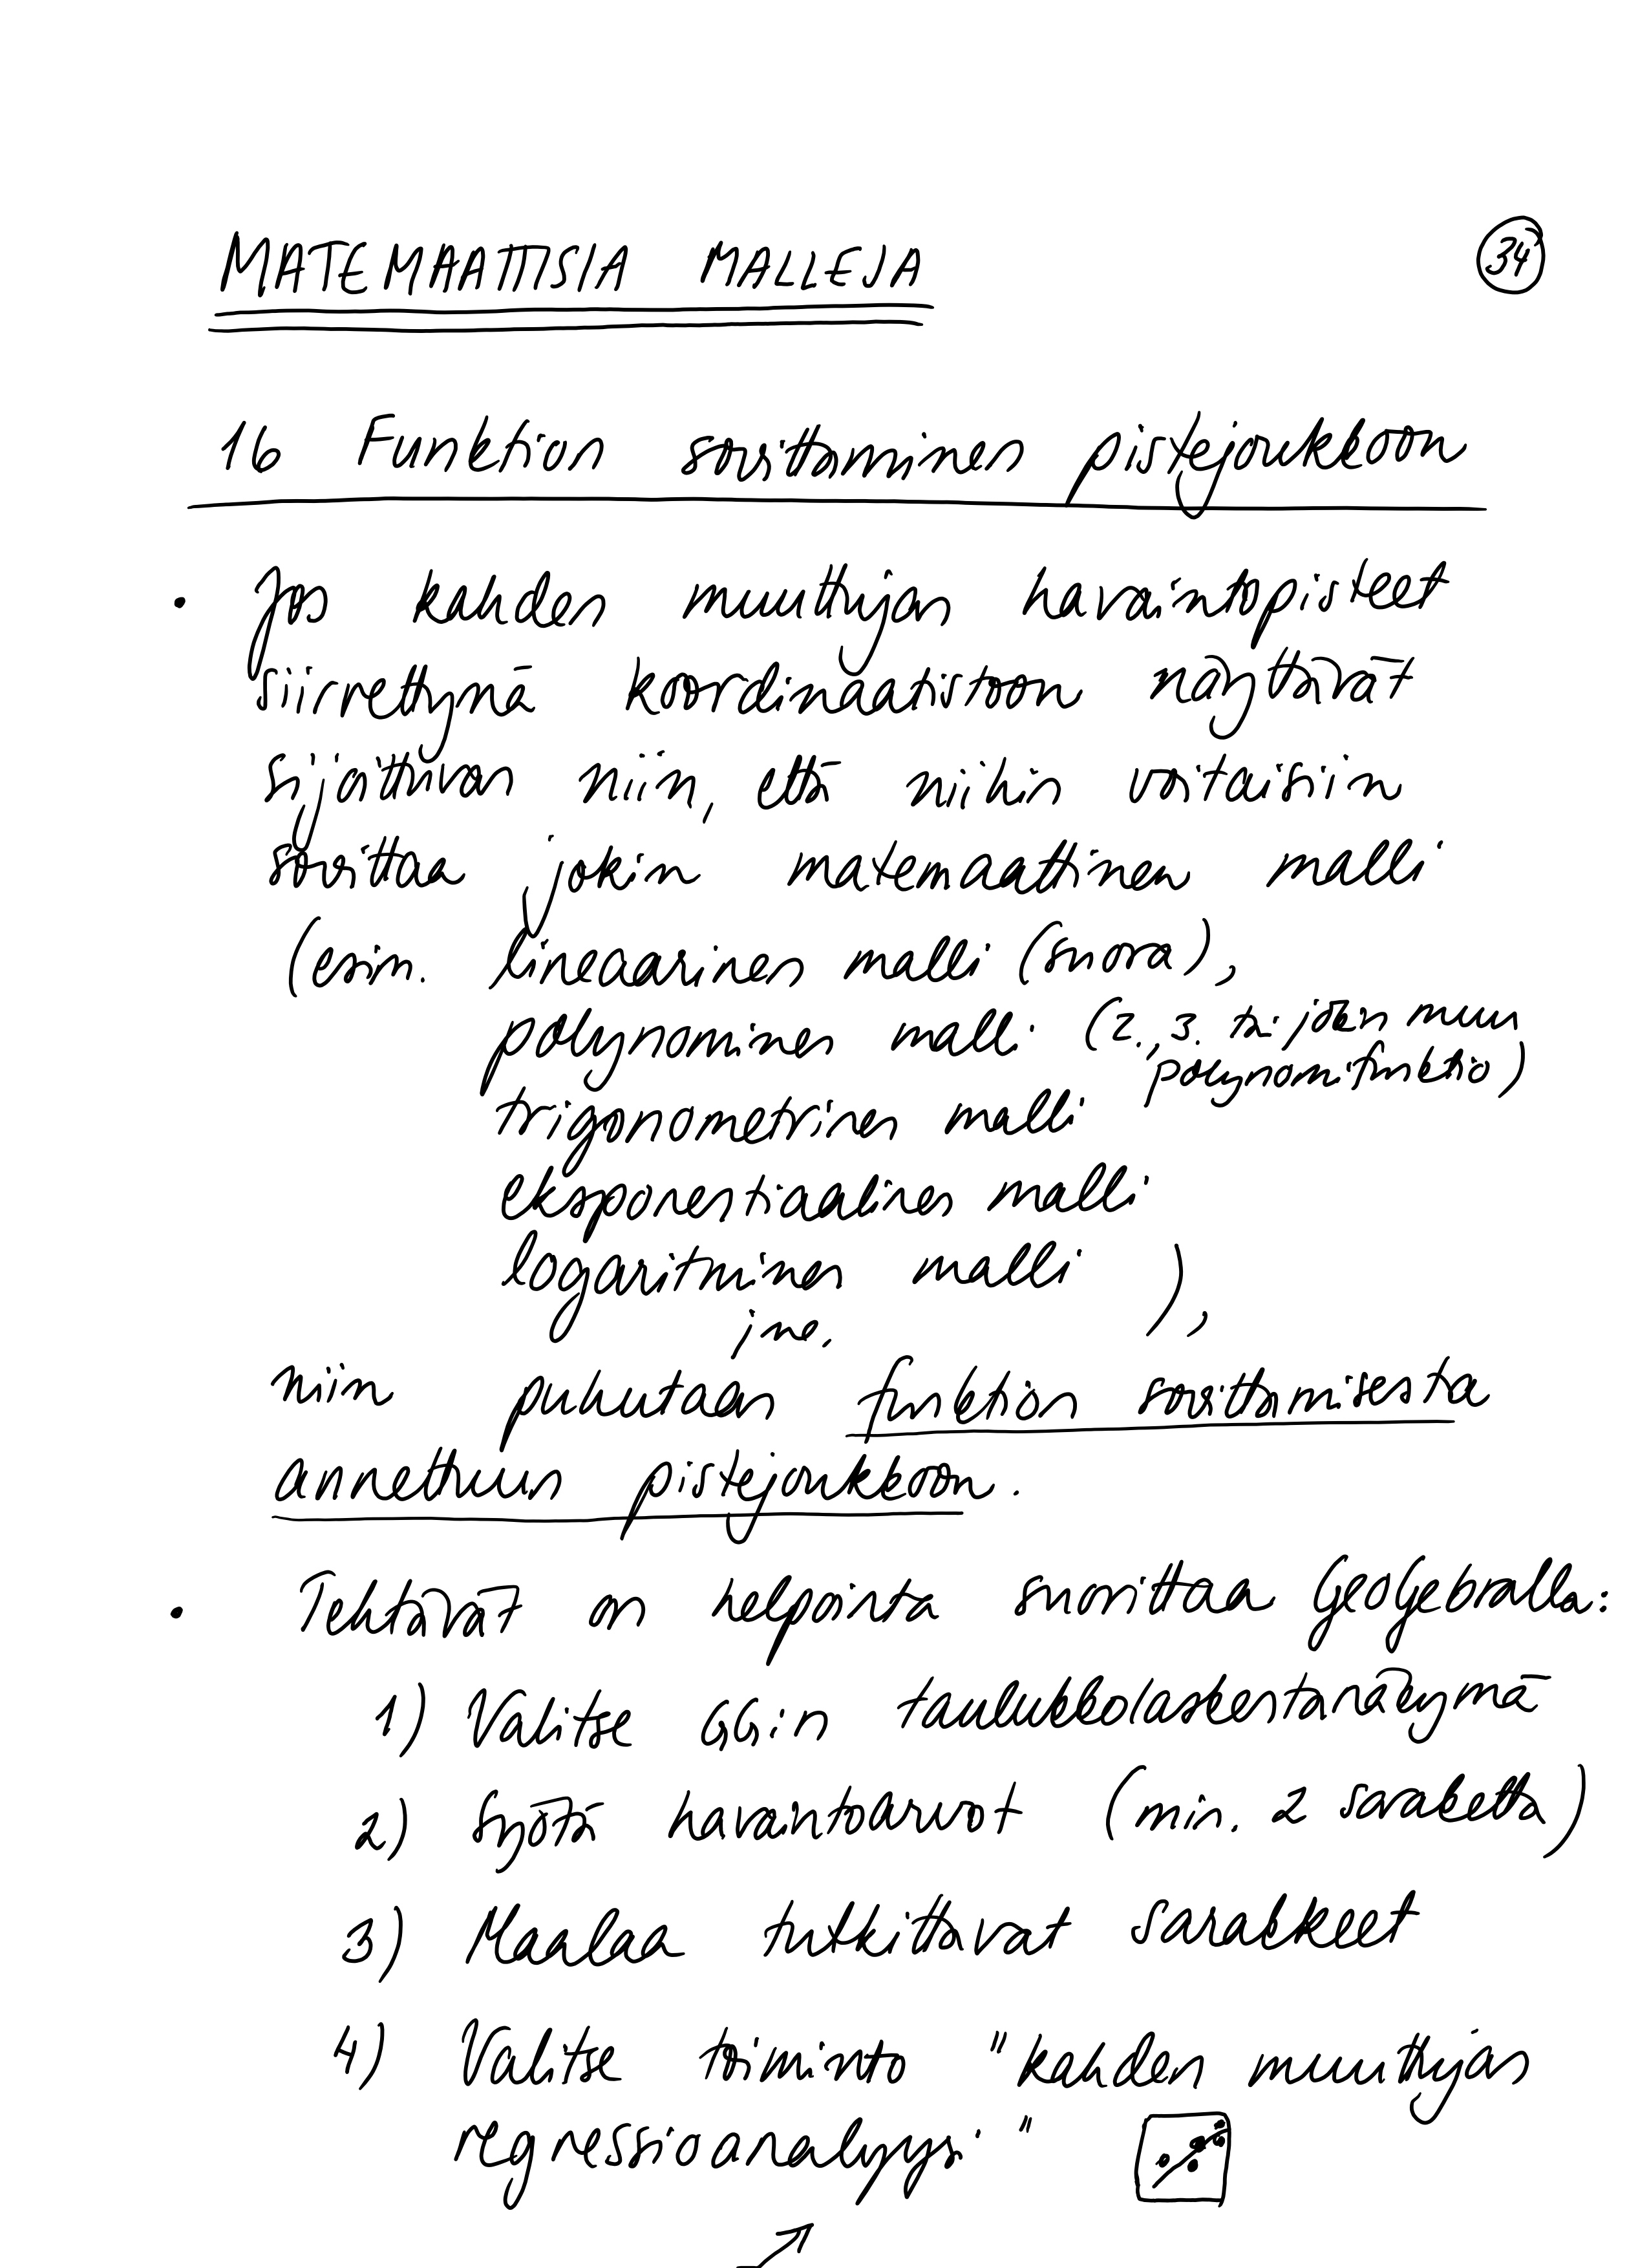 MATEMAATTISIA MALLEJA
34
16 Funktion sovittaminen pistejoukkoon
• Jos kahden muuttujan havaintopisteet
siirrettynä koordinaatistoon näyttävät
sijoittuvan niin, että niihin voitaisiin
sovittaa jokin matemaattinen malli
(esim. lineaarinen malli (suora),
polynominen malli (2., 3. tai jokin muu
polynomifunktio)
trigonometrinen malli
eksponentiaalinen malli
logaritminen malli ),
jne.
niin puhutaan funktion sovittamisesta
annettuun pistejoukkoon.
• Tehtävät on helpointa suorittaa GeoGebralla:
1) Valitse GG:n taulukkolaskentanäkymä
2) Syötä havaintoarvot (min. 2 saraketta)
3) Maalaa tutkittavat sarakkeet
4) Valitse toiminto "kahden muuttujan
regressioanalyysi"